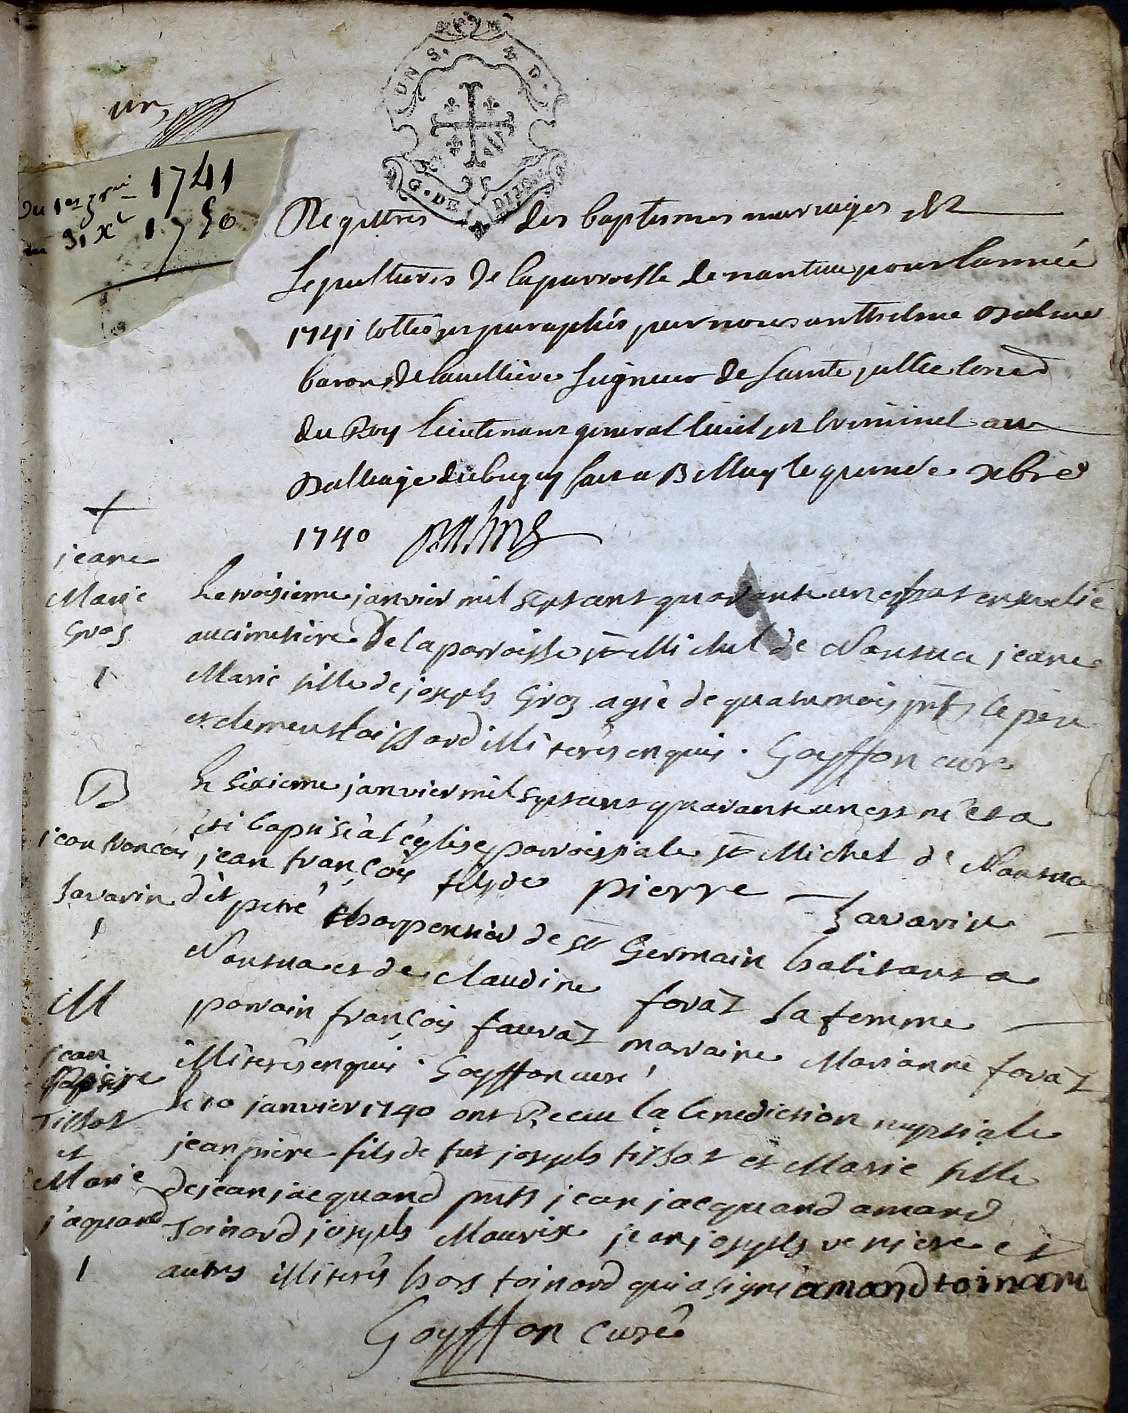 un
DN S. & D.
G. DE DIJON
Du 1er 1741
au 31 xe 1750
Registres des baptesmes mariages et
sepultures de la parroisse de nantua pour lannée
1741 cottés et paraphés par nous anthelme Balme
baron de Seigneur de Sainte jullie
du Roy lieutenant general civil et criminel au
Balliage du bugey fait a Belley le xbre
1740 Balme
+
jeane
Marie
Gros
1
Le troisieme janvier mil sept cent quarante un est enseveli
au cimetiere de la parroisse st Michel de Nantua jeane
Marie fille de joseph Groz agée de quatre mois pnts le pere
et clement illiterés enquis. Goyffon curé
B
jean françois
Savarin
1
Le sixieme janvier mil sept cent quarante un est né et a
été baptisé a l'église parroissiale st Michel de Nantua
jean françois fils de pierre Savarin
dit petre charpentier de st Germain habitant a
Nantua et de claudine forat sa femme
parrain françois fauraz marraine Marianne foraz
illiterés enquis. Goyffon curé
M
jean
pierre
Tissot
et
Marie
jaquand
1
Le 10 janvier 1740 ont Receu la benediction nuptiale
jean pierre fils de fut joseph tissot et Marie fille
de jean jacquand pnts jean jacquand amand
Toinard joseph Maurix jean joseph et
autres illiterés hors toinard qui a signé amand toinard
Goyffon curé